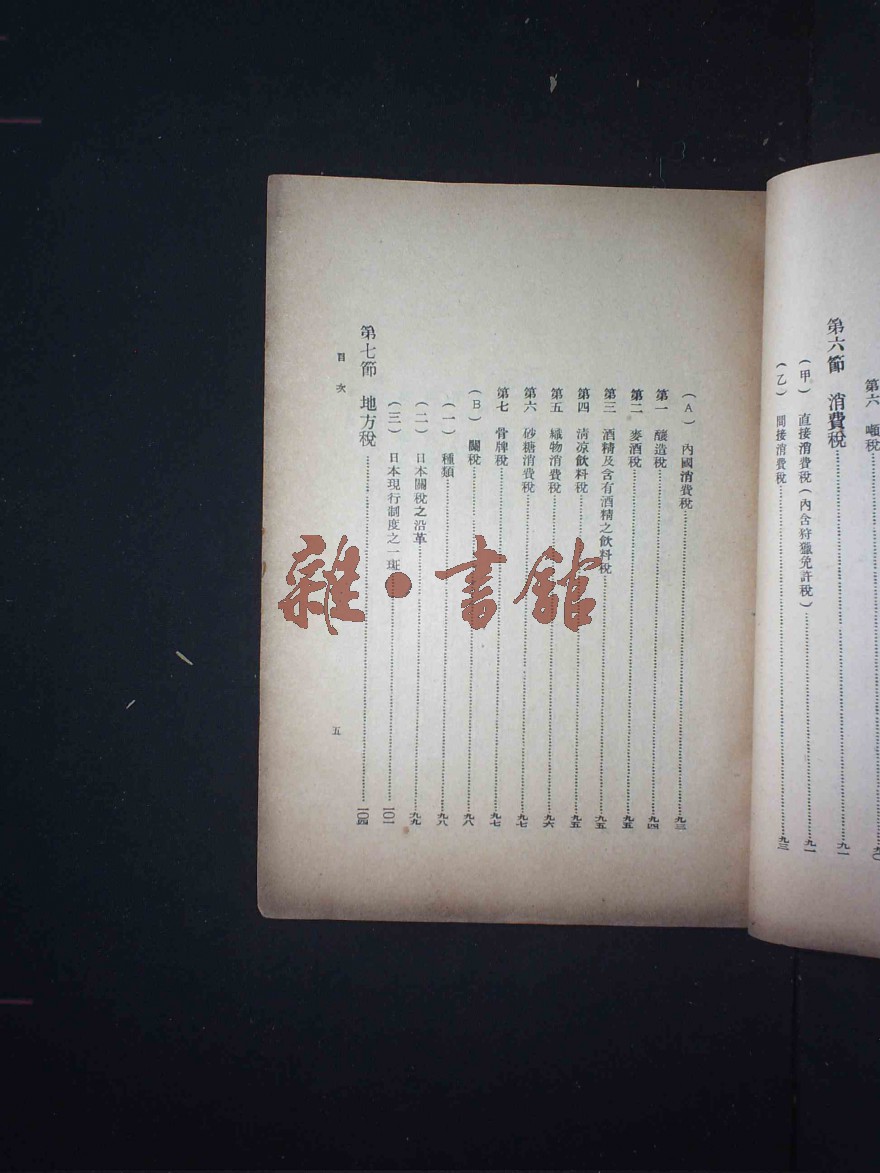 第六　噸稅……九〇
第六節　消費稅……九一
（甲）　直接消費稅（內含狩獵免許稅）……九一
（乙）　間接消費稅……九三
（A）　內國消費稅……九三
第一　釀造稅……九四
第二　麥酒稅……九五
第三　酒精及含有酒精之飲料稅……九五
第四　淸凉飲料稅……九五
第五　織物消費稅……九六
第六　砂糖消費稅……九七
第七　骨牌稅……九七
（B）　關稅……九八
（一）　種類……九八
（二）　日本關稅之沿革……九九
（三）　日本現行制度之一斑……一〇一
第七節　地方稅……一〇四
目次
五
雜·書館